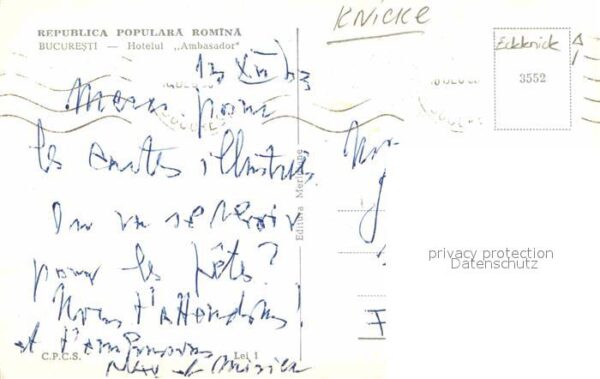 REPUBLICA POPULARĂ ROMÎNĂ
BUCUREŞTI — Hotelul „Ambasador"
KNICKE
Eckknick
3552
13 XII 63
Merci pour
les cartes illustrées
On va se revoir
pour les fêtes?
Nous t'attendons!
et t'embrassons
et
Editura Meridiane
privacy protection
Datenschutz
C.P.C.S.
Lei 1